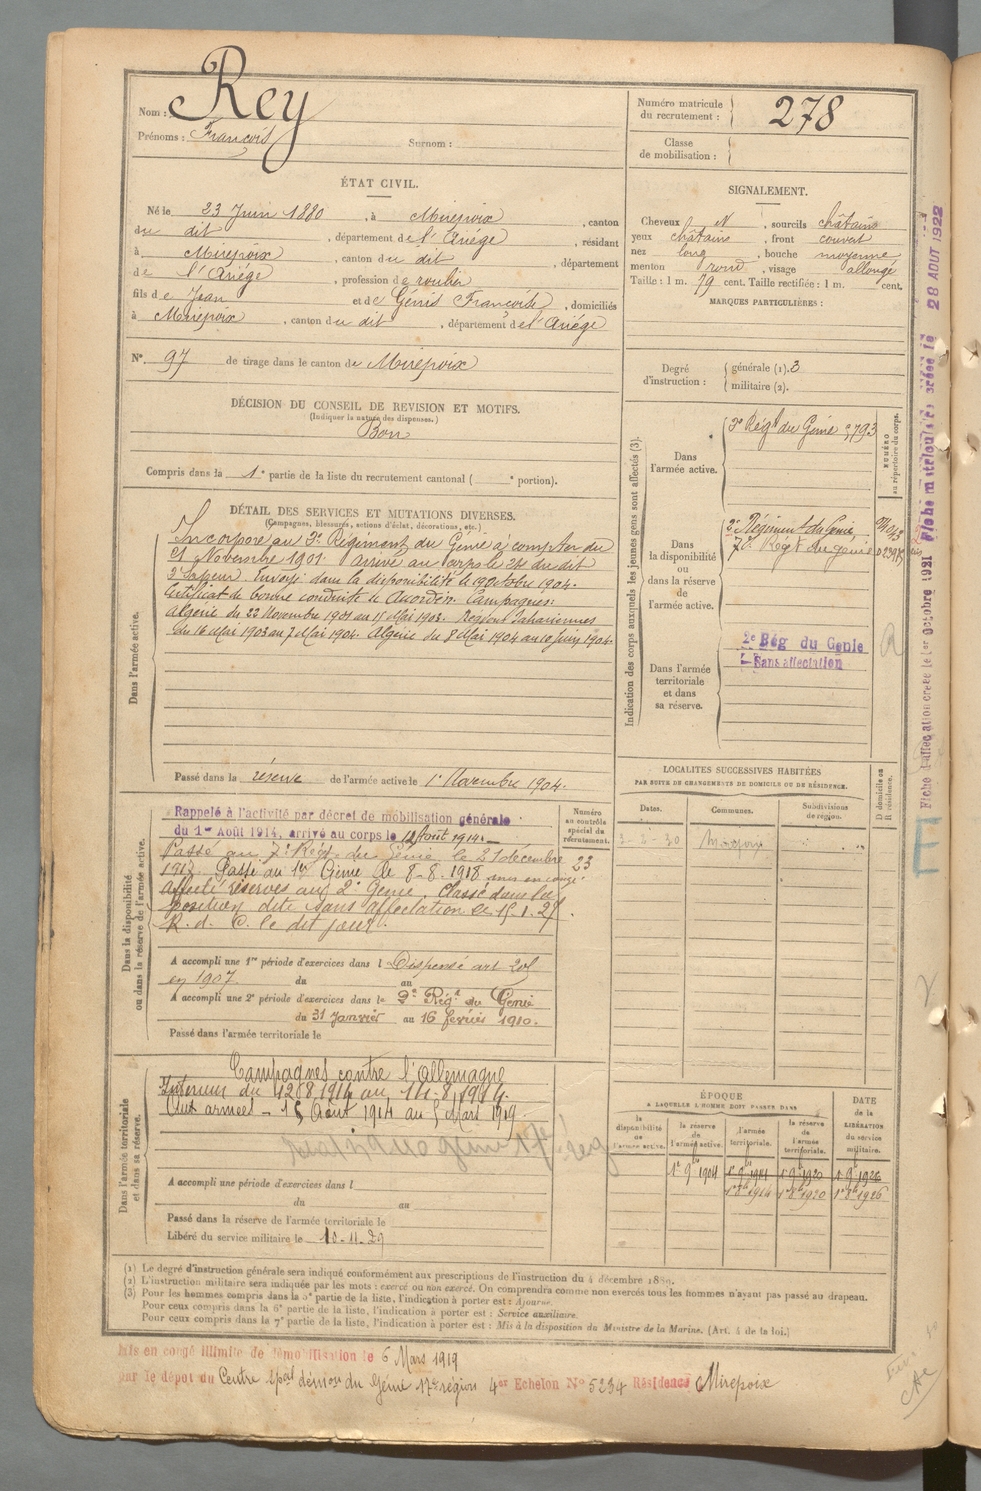 Nom : Rey
Prénoms : François Surnom :
Numéro matricule
du recrutement : 278
Classe
de mobilisation :
ÉTAT CIVIL.
Né le 23 Juin 1880, à Mirepoix, canton
du dit, département de l'Ariège, résidant
à Mirepoix, canton du dit, département
de l'Ariège, profession de roulier
fils de Jean et de Génis Françoise, domiciliés
à Mirepoix, canton du dit, département de l'Ariège
N° 97 de tirage dans le canton de Mirepoix
SIGNALEMENT.
Cheveux N, sourcils châtains
yeux châtains, front couvert
nez long, bouche moyenne
menton rond, visage allongé
Taille : 1 m. 79 cent. Taille rectifiée : 1 m. cent.
MARQUES PARTICULIÈRES :
Degré
d'instruction :
générale (1). 3
militaire (2).
DÉCISION DU CONSEIL DE REVISION ET MOTIFS.
(Indiquer la nature des dispenses.)
Bon
Compris dans la 1e partie de la liste du recrutement cantonal ( e portion).
DÉTAIL DES SERVICES ET MUTATIONS DIVERSES.
(Campagnes, blessures, actions d'éclat, décorations, etc.)
Dans l'armée active.
Incorporé au 3e Régiment du Génie à compter du
Novembre 1901 arrivé au corps le dit du dit
2e Sapeur. Envoyé dans la disponibilité le 19 Octobre 1904.
Certificat de bonne conduite Accordé. Campagnes:
Algérie du 22 Novembre 1901 au 15 Mai 1903. Régions Sahariennes
du 16 Mai 1903 au 7 Mai 1904. Algérie du 8 Mai 1904 au 10 1904.
Passé dans la réserve de l'armée active le 1er Novembre 1904.
Indication des corps auxquels les jeunes gens sont affectés (3).
Dans
l'armée active.
3e Régt du Génie 2793
NUMÉRO
au répertoire du corps.
Dans
la disponibilité
ou
dans la réserve
de
l'armée active.
2e Régiment du Génie
7e Régt du génie
Dans l'armée
territoriale
et dans
sa réserve.
2e Rég du Génie
Sans affectation
Fiche d'affectation créée le 1er Octobre 1921 Fiche matriculaire créée le 28 AOUT 1922
LOCALITÉS SUCCESSIVES HABITÉES
PAR SUITE DE CHANGEMENTS DE DOMICILE OU DE RÉSIDENCE.
Dates. Communes. Subdivisions
de région.
D domicile ou
R résidence.
Dans la disponibilité
ou dans la réserve de l'armée active.
Rappelé à l'activité par décret de mobilisation générale
du 1er Août 1914, arrivé au corps le 12 Août 1914.
Passé au 7e Régt du Génie le 21 décembre
1917. Passé au 1er Génie le 8-8-1918 mis en congé
affecté réserves au 2e Génie. Classé dans la
position dite sans affectation le 15.1.27
R. d. C. le dit jour.
Numéro
au contrôle
spécial du
recrutement.
23
A accompli une 1re période d'exercices dans l Dispensé art
en 1907 du au
A accompli une 2e période d'exercices dans le 2e Régt du Génie
du 31 Janvier au 16 février 1910.
Passé dans l'armée territoriale le
Dans l'armée territoriale
et dans sa réserve.
Campagnes contre l'allemagne
Intérieur du 12.8.1914 au 14.8.1914.
Aux armées - 15 Août 1914 au 5 Mars 1919
A accompli une période d'exercices dans l
du au
Passé dans la réserve de l'armée territoriale le
Libéré du service militaire le 10-11-29
ÉPOQUE
A LAQUELLE L'HOMME DOIT PASSER DANS
DATE
de la
LIBÉRATION
du service
militaire.
la
disponibilité
de
l'armée active.
la réserve
de
l'armée active.
l'armée
territoriale.
la réserve
de
l'armée
territoriale.
1er 9bre 1904 1er 9bre 1914 1er 9bre 1920 1er 9bre 1926
1er 8bre 1914 1er 8bre 1920 1er 8bre 1926
(1) Le degré d'instruction générale sera indiqué conformément aux prescriptions de l'instruction du 4 décembre 1889.
(2) L'instruction militaire sera indiquée par les mots : exercé ou non exercé. On comprendra comme non exercés tous les hommes n'ayant pas passé au drapeau.
(3) Pour les hommes compris dans la 5e partie de la liste, l'indication à porter est : Ajourné.
Pour ceux compris dans la 6e partie de la liste, l'indication à porter est : Service auxiliaire.
Pour ceux compris dans la 7e partie de la liste, l'indication à porter est : Mis à la disposition du Ministre de la Marine. (Art. 4 de la loi.)
Mis en congé illimité de démobilisation le 6 Mars 1919
par le dépôt du Centre spécial démon du Génie 17e région 4er Echelon N° 5234 Résidence Mirepoix